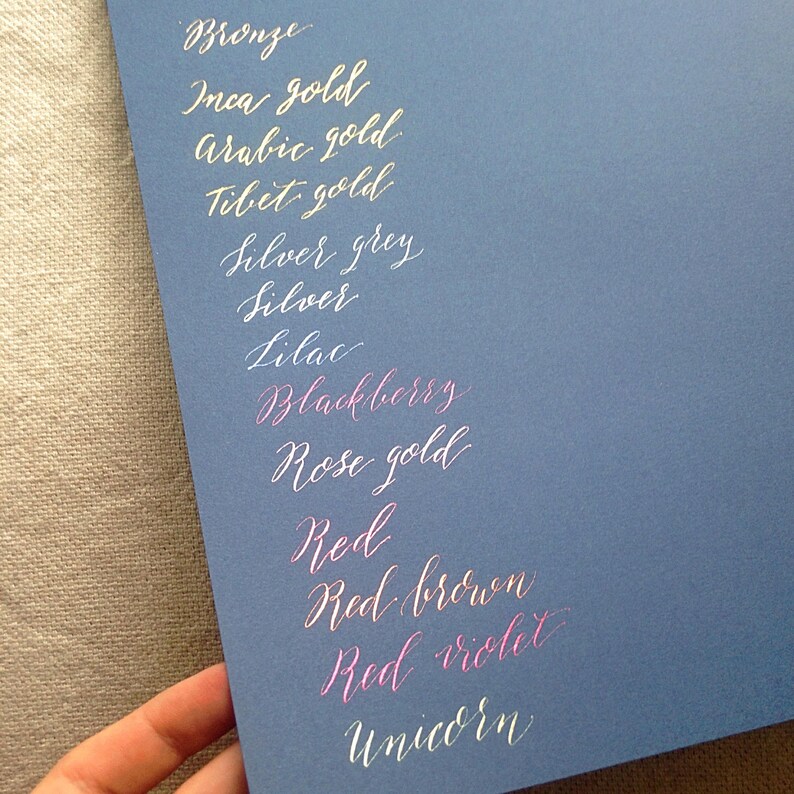 Bronze
Inca gold
Arabic gold
Tibet gold
Silver grey
Silver
Lilac
Blackberry
Rose gold
Red
Red brown
Red violet
Unicorn